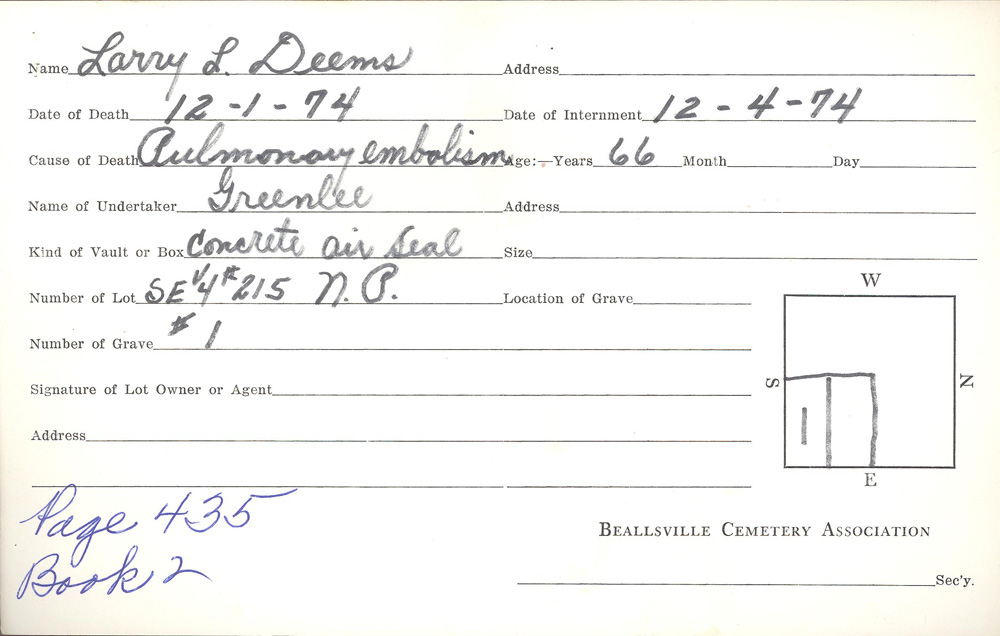 Name Larry L. Deems Address
Date of Death 12-1-74 Date of Internment 12-4-74
Cause of Death Pulmonary embolism Age:—Years 66 Month Day
Name of Undertaker Greenlee Address
Kind of Vault or Box Concrete air seal Size
Number of Lot SE 1/4 # 215 N. P. Location of Grave
Number of Grave # 1
Signature of Lot Owner or Agent
Address
W
S N
E
Page 435
Book 2
BEALLSVILLE CEMETERY ASSOCIATION
Sec'y.